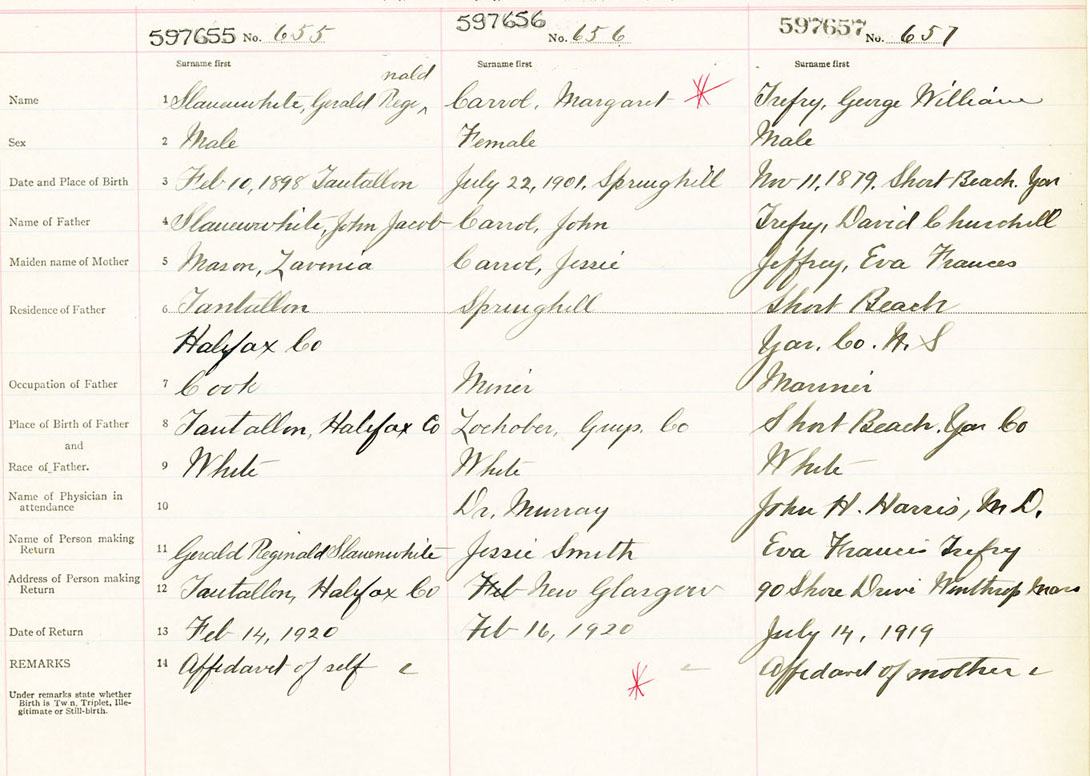 597655 No. 655 597656 No. 656 597657 No. 657
Surname first Surname first Surname first
nald
Name 1 Slauenwhite, Gerald Regi^ Carrol, Margaret Trefry, George William
Sex 2 Male Female Male
Date and Place of Birth 3 Feb 10, 1898 Tantallon July 22, 1901, Springhill Nov 11, 1879. Short Beach. Yar
Name of Father 4 Slauenwhite, John Jacob Carrol, John Trefry, David Churchill
Maiden name of Mother 5 Mason, Lavenia Carrol, Jessie Jeffrey, Eva Frances
Residence of Father 6 Tantallon Springhill Short Beach
Halifax Co Yar. Co. N. S
Occupation of Father 7 Cook Miner Mariner
Place of Birth of Father 8 Tantallon, Halifax Co Lochober, Guys. Co Short Beach, Yar Co
and
Race of Father. 9 White White White
Name of Physician in
attendance 10 Dr. Murray John H. Harris, M.D.
Name of Person making
Return 11 Gerald Reginald Slauenwhite Jessie Smith Eva Francis Trefry
Address of Person making
Return 12 Tantallon, Halifax Co Feb New Glasgow 90 Shore Drive Winthrop Mass
Date of Return 13 Feb 14, 1920 Feb 16, 1920 July 14, 1919
REMARKS 14 Affidavit of self c c Affidavit of mother c
Under remarks state whether
Birth is Twin, Triplet, Ille-
gitimate or Still-birth.